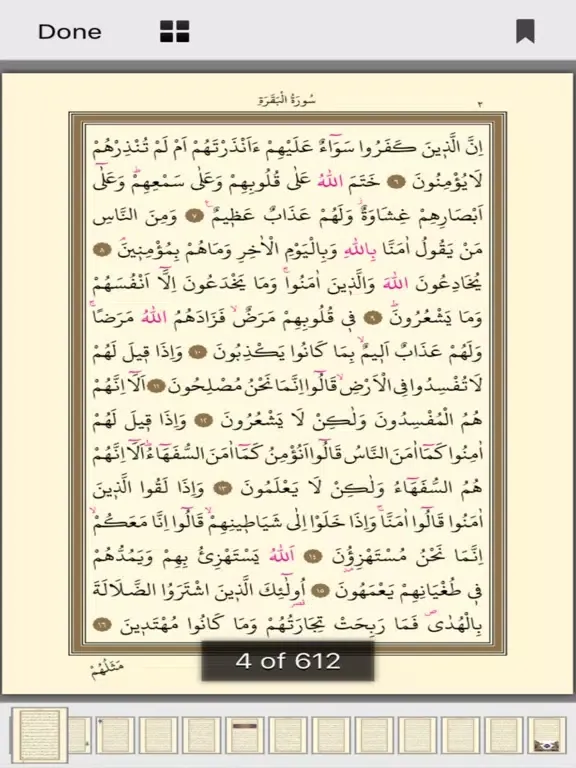 Done
سُورَةُ الْبَقَرَةِ ٢
اِنَّ الَّذ۪ينَ كَفَرُوا سَوَٓاءٌ عَلَيْهِمْ ءَاَنْذَرْتَهُمْ اَمْ لَمْ تُنْذِرْهُمْ
لَا يُؤْمِنُونَ ﴿٦﴾ خَتَمَ اللّٰهُ عَلٰى قُلُوبِهِمْ وَعَلٰى سَمْعِهِمْۜ وَعَلٰٓى
اَبْصَارِهِمْ غِشَاوَةٌۘ وَلَهُمْ عَذَابٌ عَظ۪يمٌ۟ ﴿٧﴾ وَمِنَ النَّاسِ
مَنْ يَقُولُ اٰمَنَّا بِاللّٰهِ وَبِالْيَوْمِ الْاٰخِرِ وَمَاهُمْ بِمُؤْمِن۪ينَۢ ﴿٨﴾
يُخَادِعُونَ اللّٰهَ وَالَّذ۪ينَ اٰمَنُواۚ وَمَا يَخْدَعُونَ اِلَّٓا اَنْفُسَهُمْ
وَمَا يَشْعُرُونَۜ ﴿٩﴾ ف۪ي قُلُوبِهِمْ مَرَضٌۙ فَزَادَهُمُ اللّٰهُ مَرَضًاۚ
وَلَهُمْ عَذَابٌ اَل۪يمٌۙ بِمَا كَانُوا يَكْذِبُونَ ﴿١٠﴾ وَاِذَا ق۪يلَ لَهُمْ
لَا تُفْسِدُوا فِي الْاَرْضِۙ قَالُٓوا اِنَّمَا نَحْنُ مُصْلِحُونَ ﴿١١﴾ اَلَٓا اِنَّهُمْ
هُمُ الْمُفْسِدُونَ وَلٰكِنْ لَا يَشْعُرُونَ ﴿١٢﴾ وَاِذَا ق۪يلَ لَهُمْ
اٰمِنُوا كَمَٓا اٰمَنَ النَّاسُ قَالُٓوا اَنُؤْمِنُ كَمَٓا اٰمَنَ السُّفَهَٓاءُۜ اَلَٓا اِنَّهُمْ
هُمُ السُّفَهَٓاءُ وَلٰكِنْ لَا يَعْلَمُونَ ﴿١٣﴾ وَاِذَا لَقُوا الَّذ۪ينَ
اٰمَنُوا قَالُٓوا اٰمَنَّاۚ وَاِذَا خَلَوْا اِلٰى شَيَاط۪ينِهِمْۙ قَالُٓوا اِنَّا مَعَكُمْۙ
اِنَّمَا نَحْنُ مُسْتَهْزِؤُ۫نَ ﴿١٤﴾ اَللّٰهُ يَسْتَهْزِئُ بِهِمْ وَيَمُدُّهُمْ
ف۪ي طُغْيَانِهِمْ يَعْمَهُونَ ﴿١٥﴾ اُو۬لٰٓئِكَ الَّذ۪ينَ اشْتَرَوُا الضَّلَالَةَ
بِالْهُدٰىۖ فَمَا رَبِحَتْ تِجَارَتُهُمْ وَمَا كَانُوا مُهْتَد۪ينَ ﴿١٦﴾
مَثَلُهُمْ
4 of 612